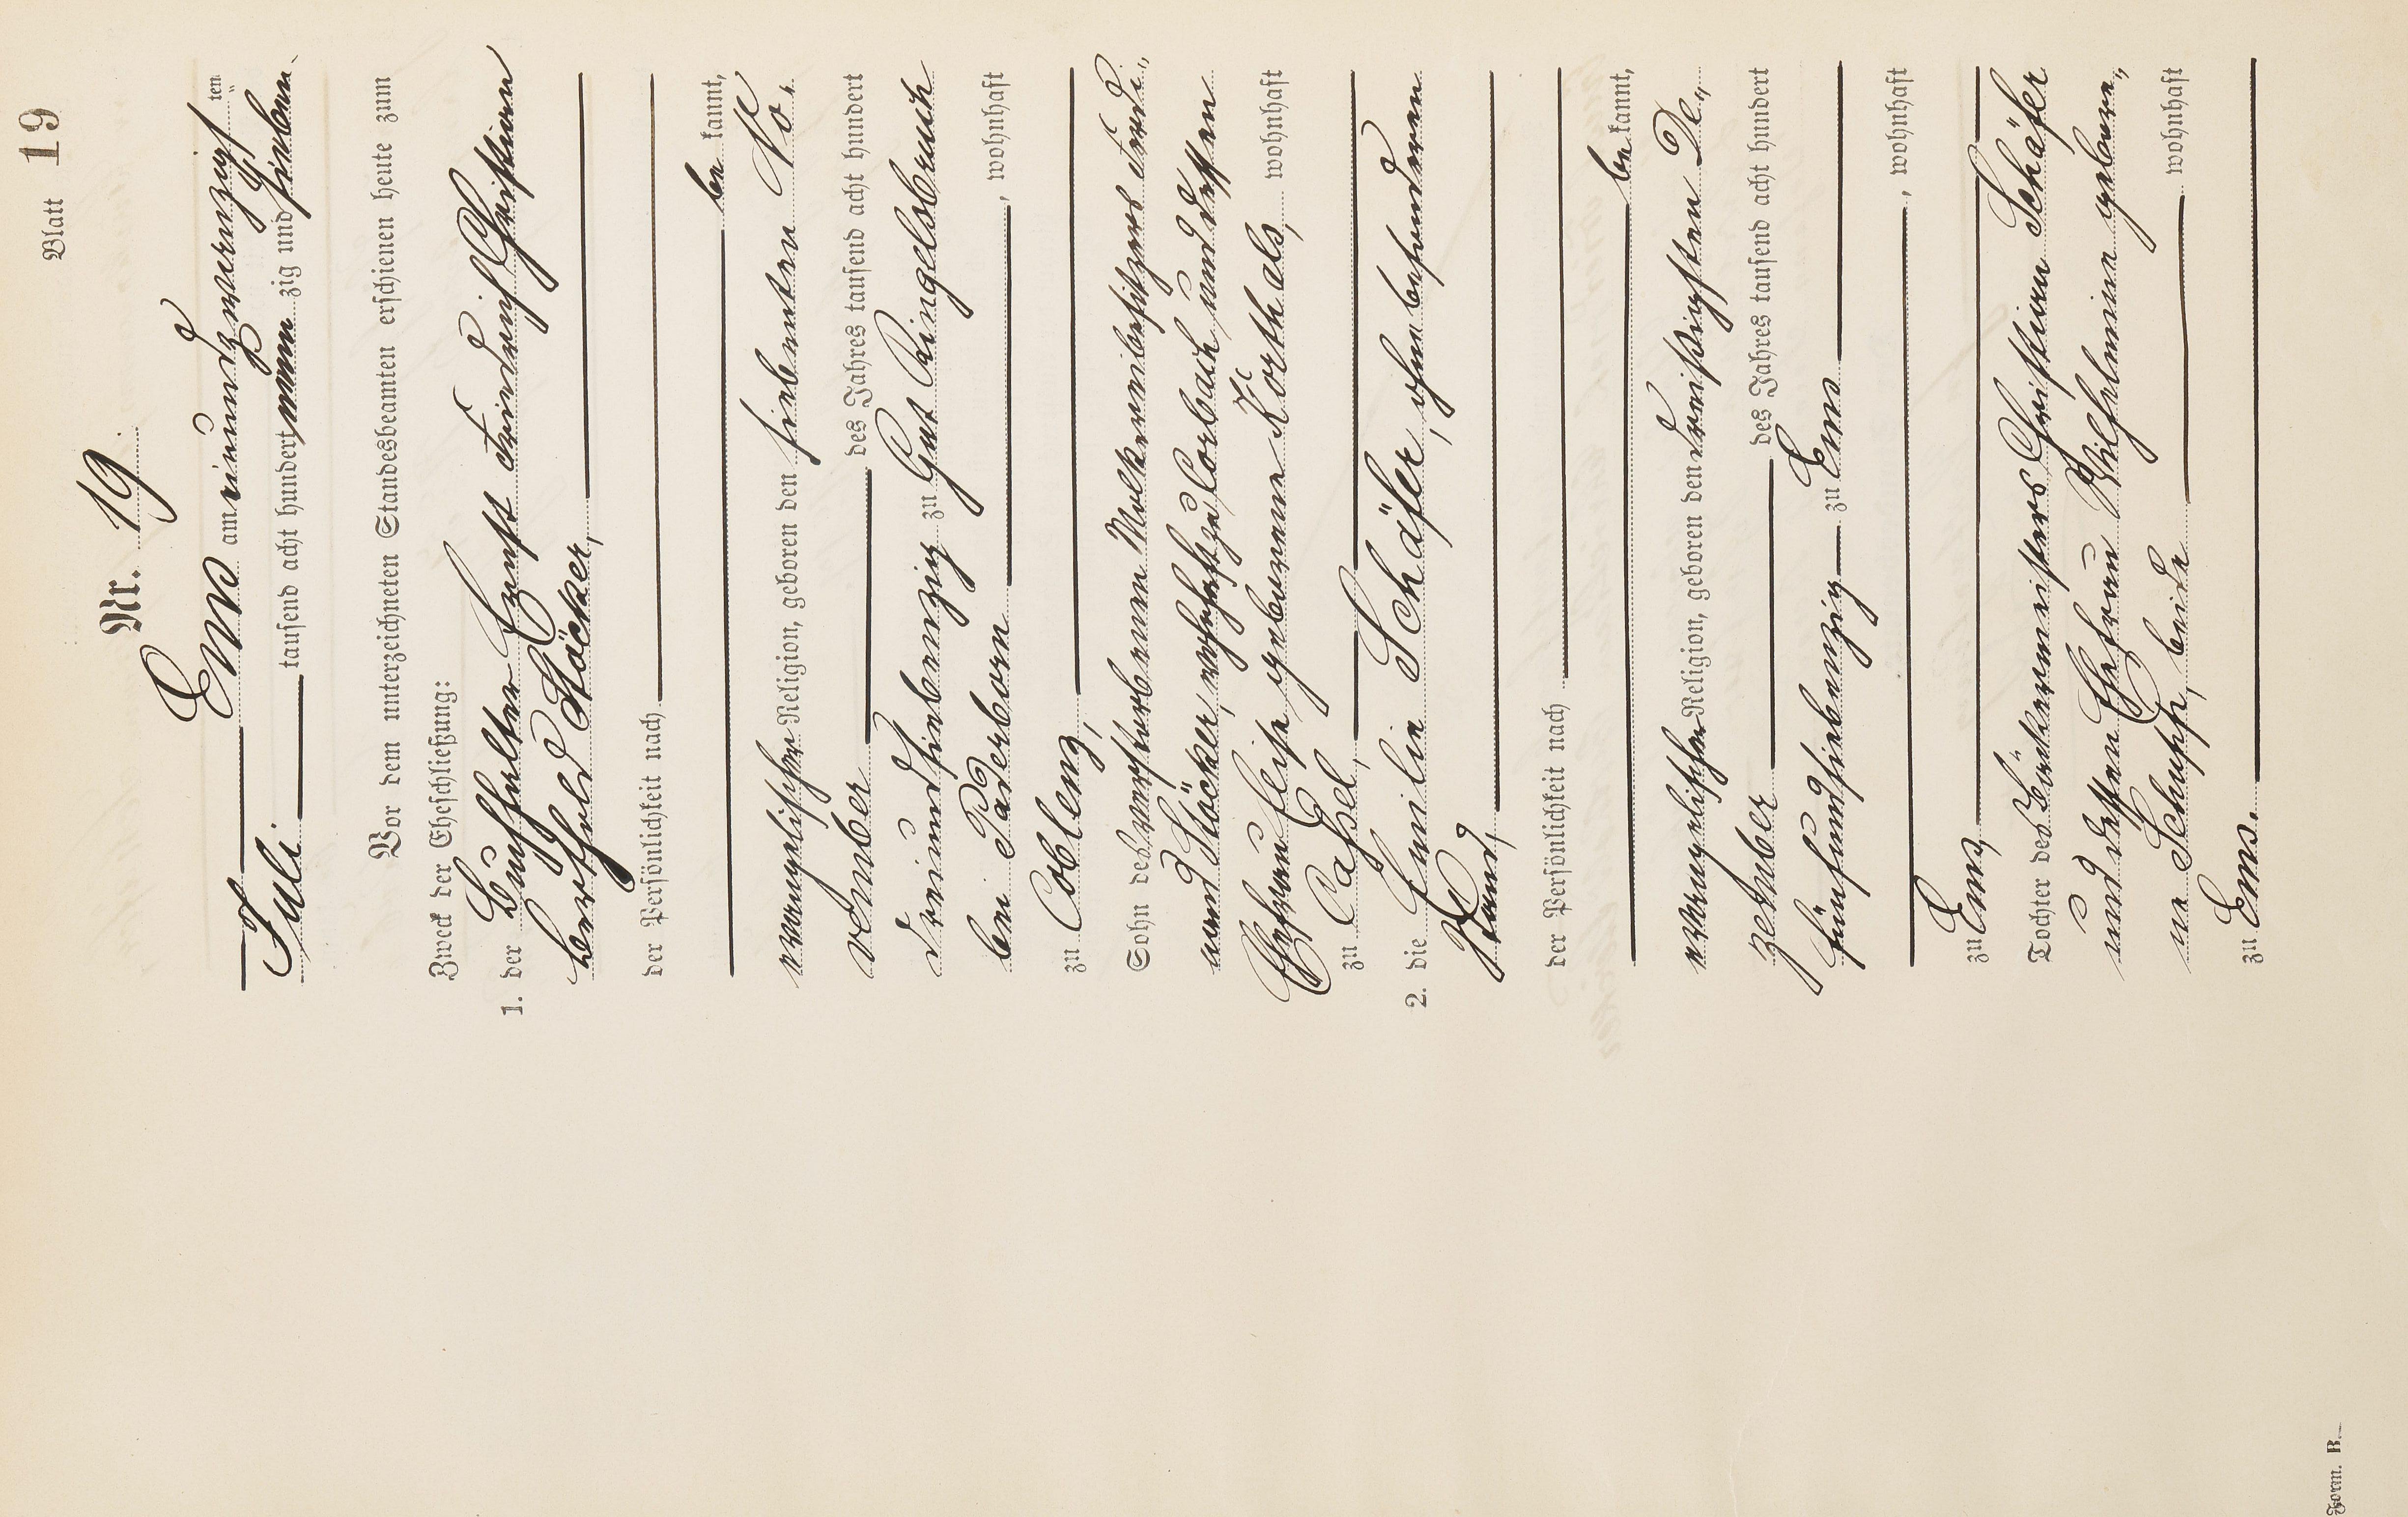 Blatt 19
Nr. 19.
Ems am neunundzwanzigsten
Juli tausend acht hundert neunzig und sieben.
Vor dem unterzeichneten Standesbeamten erschienen heute zum
Zweck der Eheschließung:
1. der Buchhalter Ernst Friedrich Christian
Berthold Stöcker,
der Persönlichkeit nach
be kannt,
evangelischer Religion, geboren den siebenten No-
vember des Jahres tausend acht hundert
dreiundsiebenzig zu Gut Ringelsbruch
bei Paderborn, wohnhaft
zu Coblenz,
Sohn des verstorbenen Molkereibesitzers Ferdi„
nand Stöcker, wohnhaft zu Corbach und dessen
Ehefrau Elise geborenen Korthals, wohnhaft
zu Caßel,
2. die Emilie Schäfer, ohne besonderen
Stand,
der Persönlichkeit nach
be kannt,
evangelischer Religion, geboren den dreißigsten De„
zember des Jahres tausend acht hundert
fünfundsiebenzig zu Ems
, wohnhaft
zu Ems,
Tochter des Bäckermeisters Christian Schäfer
und dessen Ehefrau Wilhelmine gebore„
ne Schupp, beide wohnhaft
zu Ems.
Form. B.